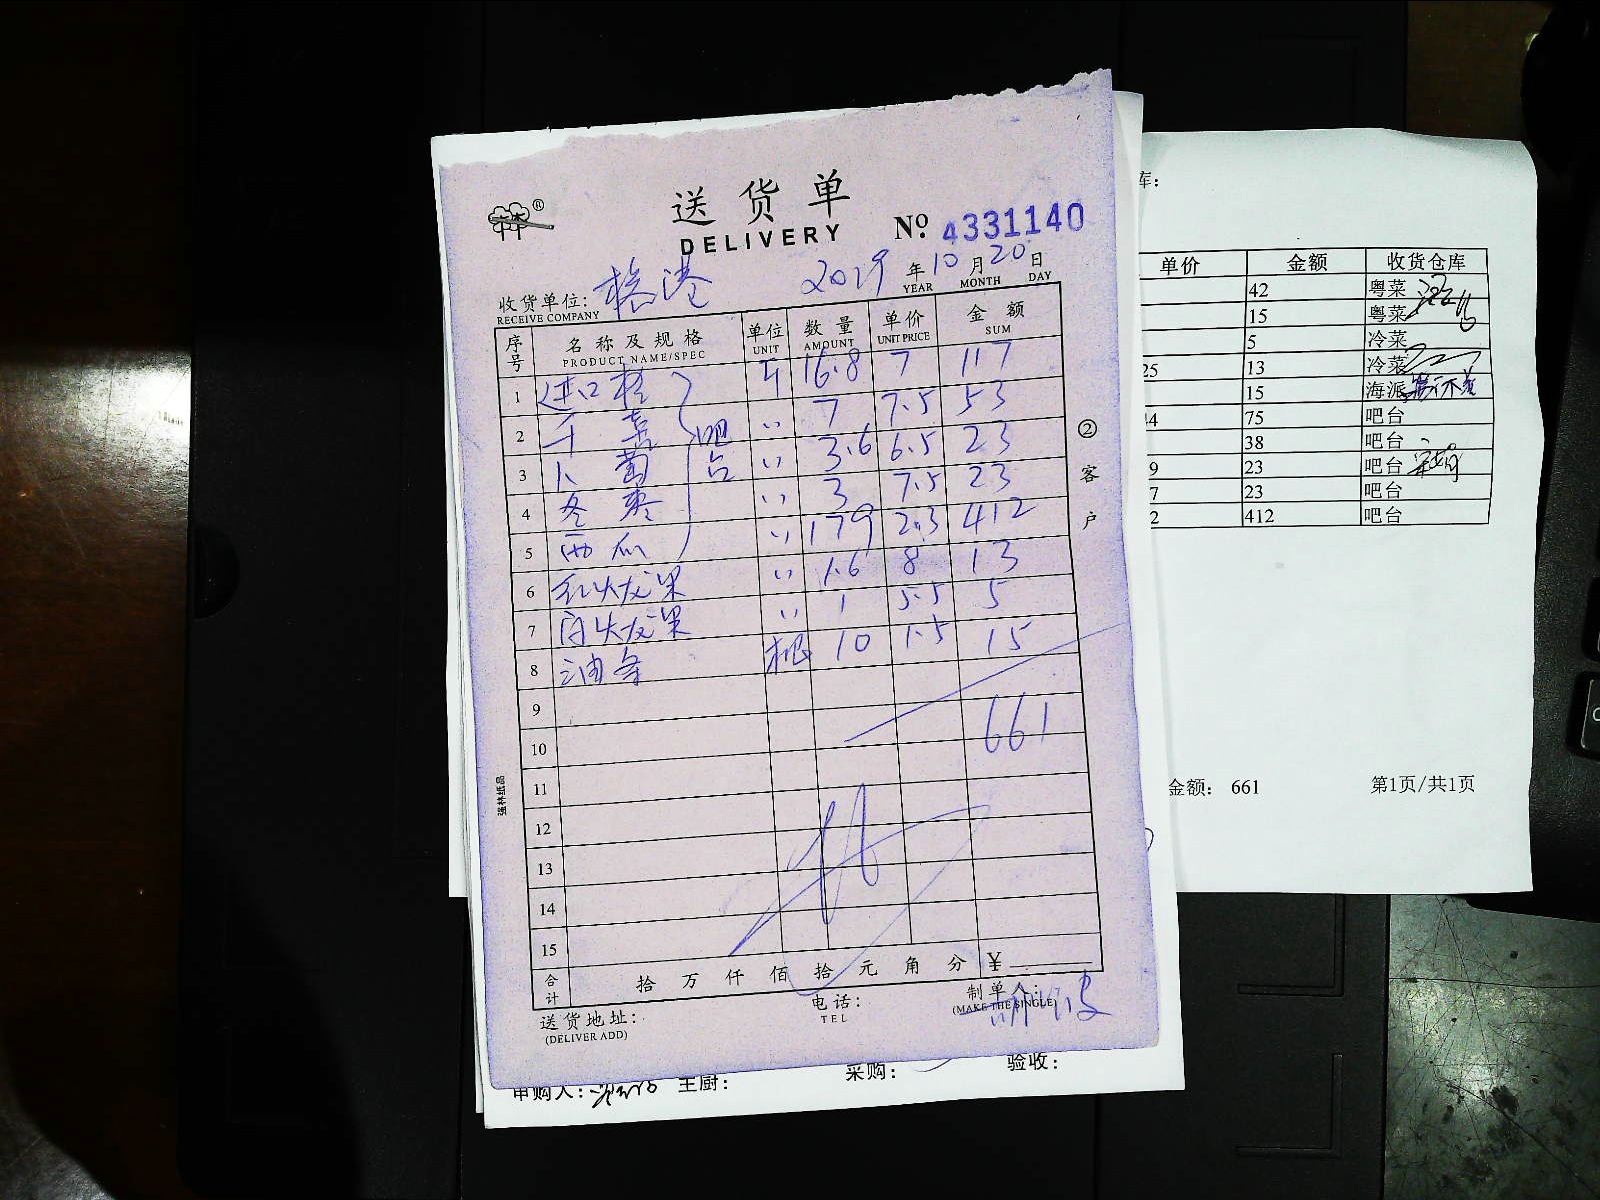 送货单
DELIVERY
No. 4331140
2019 年 10 月 20 日
YEAR MONTH DAY
收货单位: 港
RECEIVE COMPANY
序号 名称及规格 单位 数量 单价 金额
PRODUCT NAME/SPEC UNIT AMOUNT UNIT PRICE SUM
1 进口橙 斤 16.8 7 117
2 干 7 7.5 53
3 3.6 6.5 23
吧台
4 冬枣 3 7.5 23
5 西瓜 179 2.3 412
6 红火龙果 1.6 8 13
7 白火龙果 1 5.5 5
8 油条 根 10 1.5 15
9
10 661
11
12
13
14
15
合计 拾 万 仟 佰 拾 元 角 分 ¥
送货地址:
(DELIVER ADD)
电话:
TEL
制单人:
(MAKE THE SINGLE)
② 客户
强林纸品
申购人: 主厨: 采购: 验收:
库:
单价 金额 收货仓库
42 粤菜
15 粤菜
5 冷菜
25 13 冷菜
15 海派
44 75 吧台
38 吧台
9 23 吧台
7 23 吧台
2 412 吧台
金额: 661 第1页/共1页